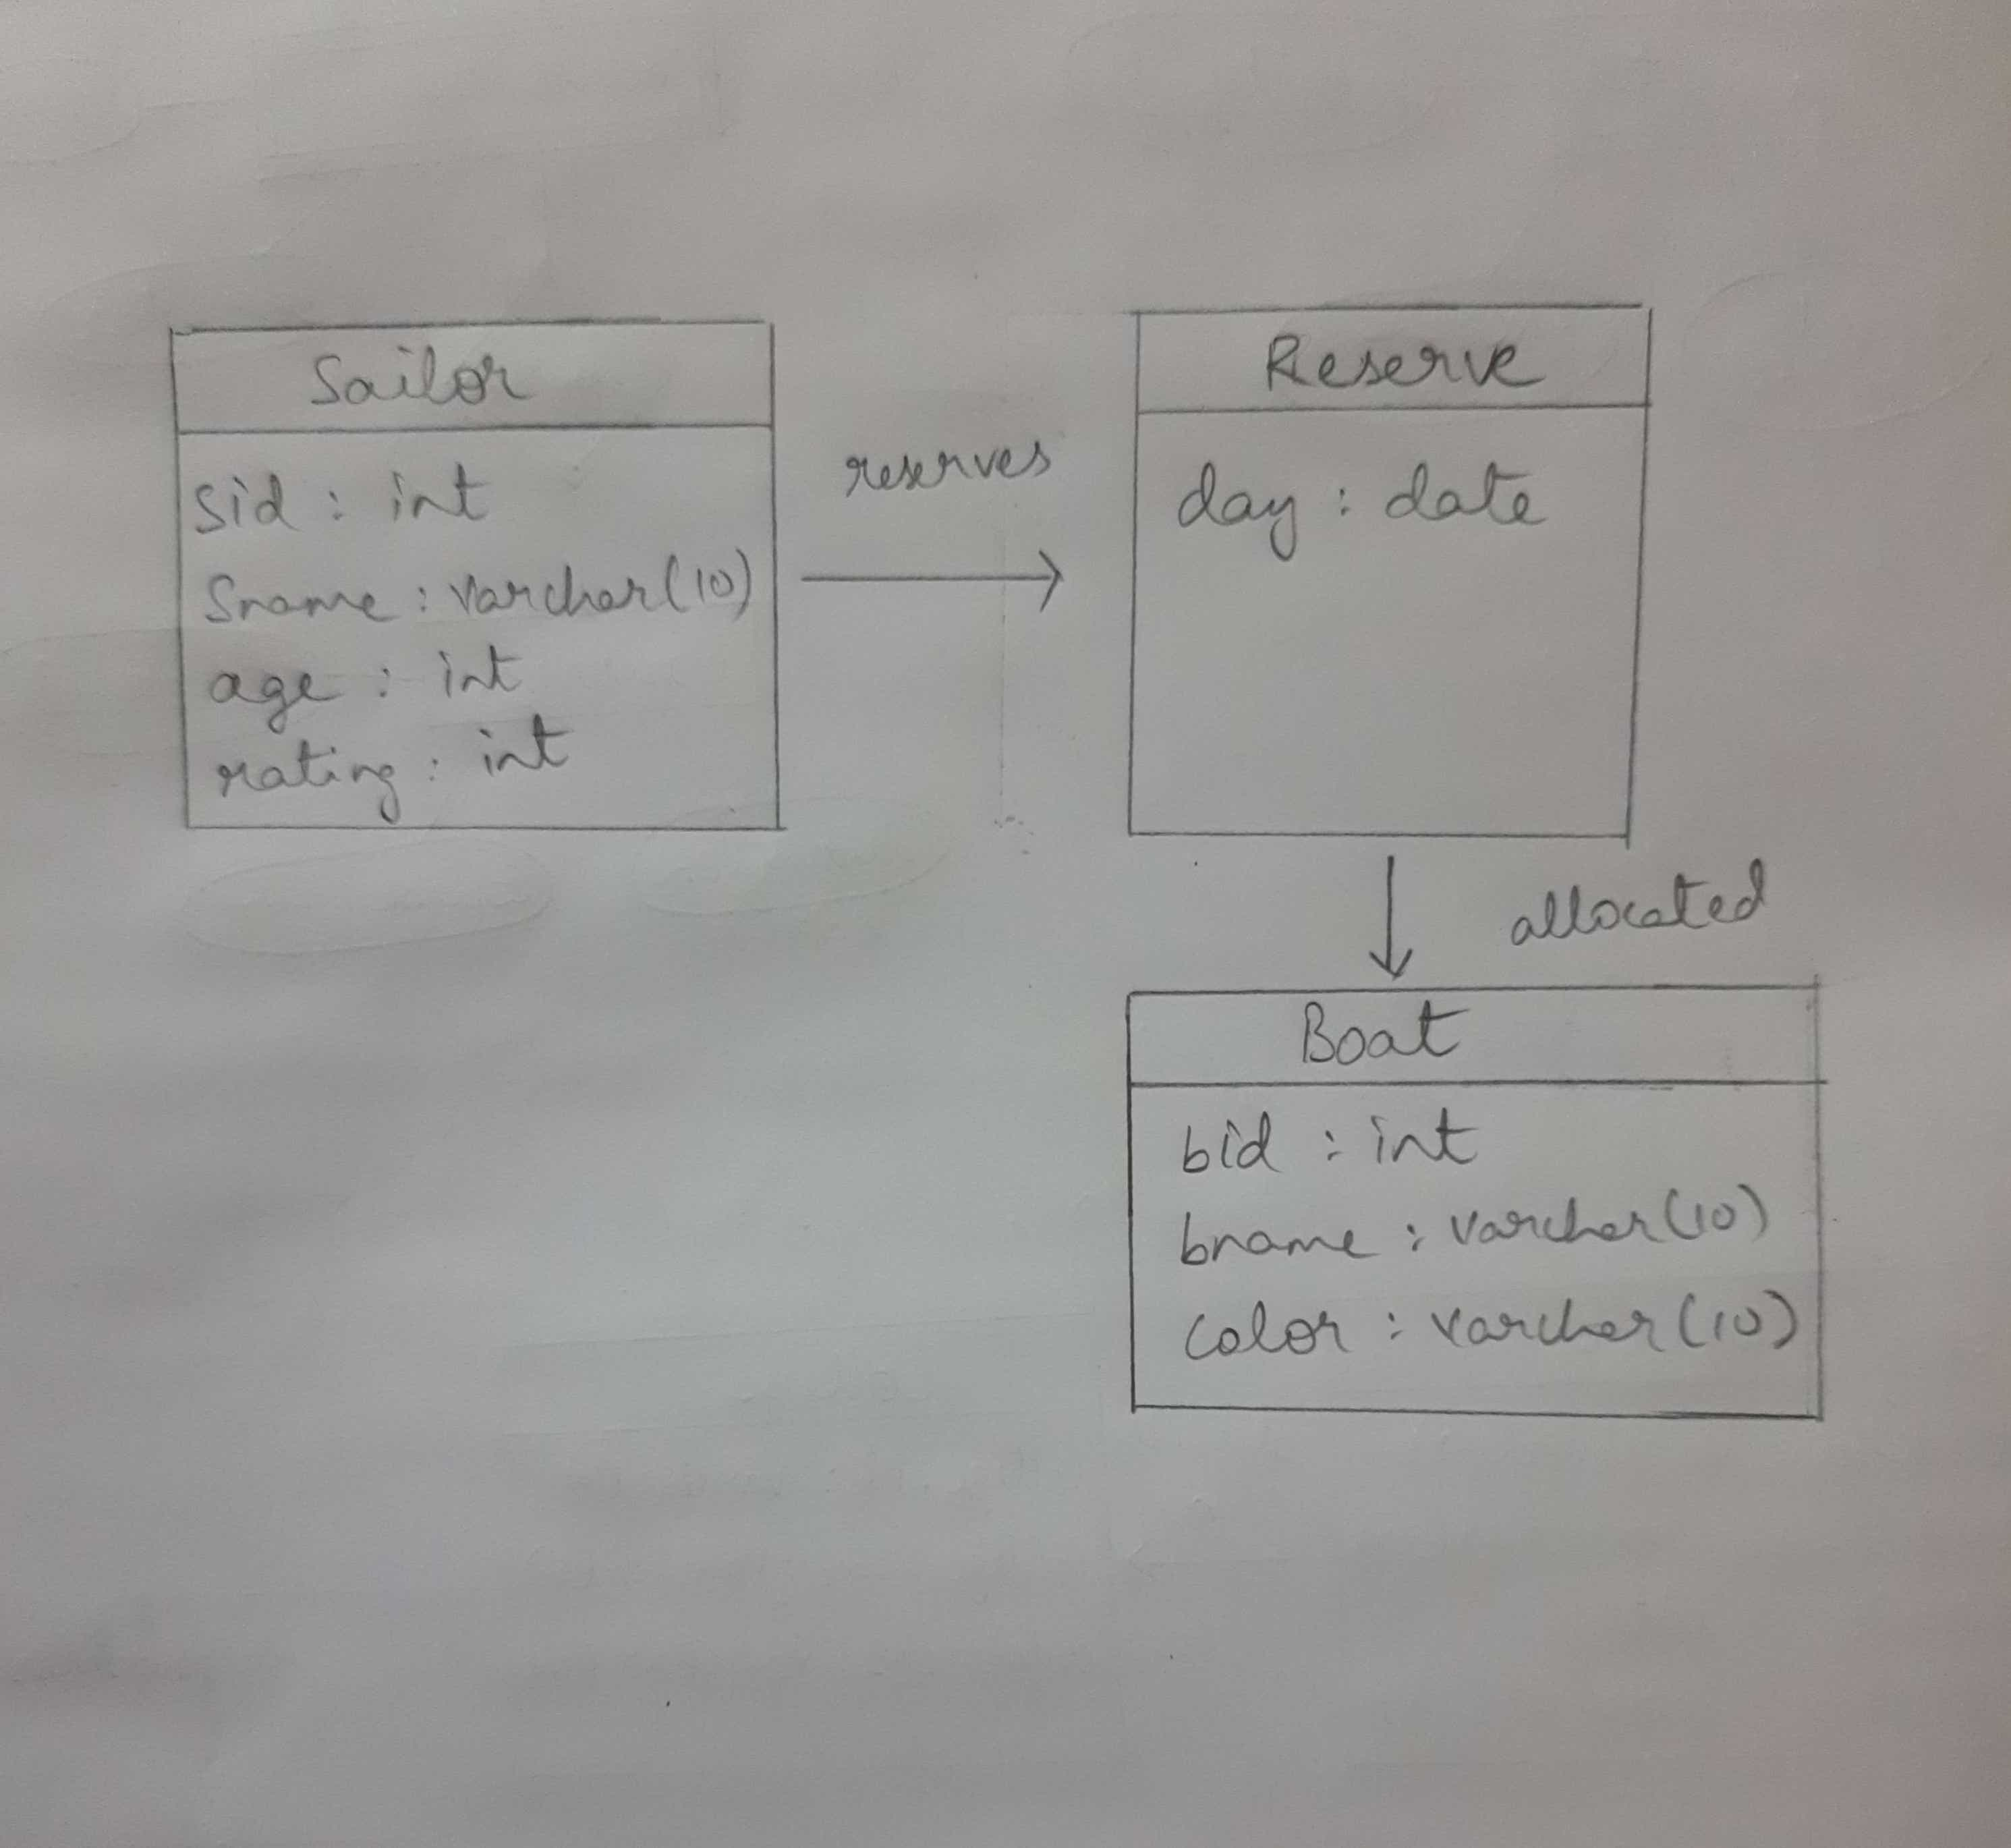 Sailor
sid : int
Sname : varchar(10)
age : int
rating : int
reserves
Reserve
day : date
allocated
Boat
bid : int
bname : varchar(10)
color : varchar(10)